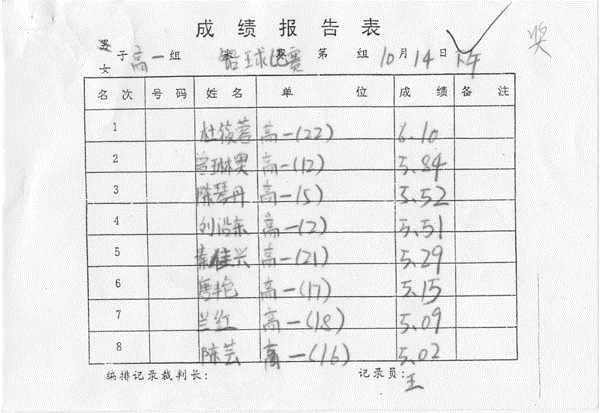 成绩报告表
男女子高一组 铅球比赛 第 组 10月14日下午
奖
名次 号码 姓名 单位 成绩 备注
1 杜筱蓉 高一(22) 6.10
2 高一(12) 5.84
3 陈琴丹 高一(5) 5.52
4 刘沿东 高一(2) 5.51
5 秦佳兴 高一(21) 5.29
6 唐艳 高一(17) 5.15
7 兰红 高一(18) 5.09
8 陈芸 高一(16) 5.02
编排记录裁判长: 记录员:王